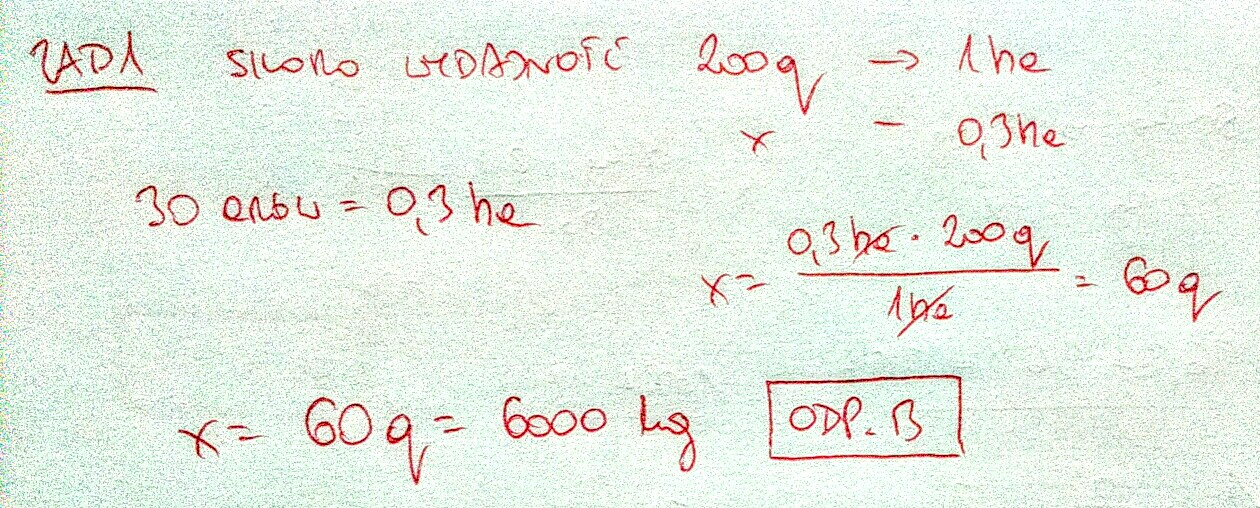 ZAD1 SKORO WYDAJNOŚĆ 200q → 1 ha
x - 0,3 ha
30 arów = 0,3 ha
x = \frac{0,3 ha · 200q}{1 ha} = 60q
x = 60q = 6000 kg ODP. B